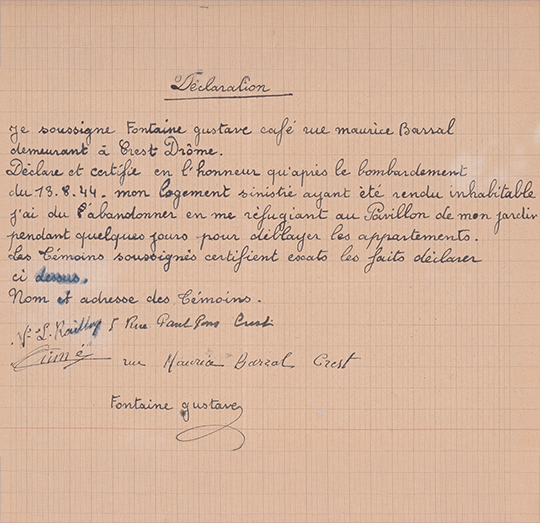 Déclaration
Je soussigne Fontaine gustave café rue maurice Barral
demeurant à Crest Drôme.
Déclare et certifie en l'honneur qu'après le bombardement
du 13.8.44. mon logement sinistrie ayant été rendu inhabitable
j'ai du l'abandonner en me réfugiant au Pavillon de mon jardin
pendant quelques jours pour déblayer les appartements.
Les Témoins soussignés certifient exats les faits déclarer
ci dessus.
Nom et adresse des Témoins.
Ve L. 5 Rue Paul Pons Crest
rue Maurice Barral Crest
Fontaine gustave